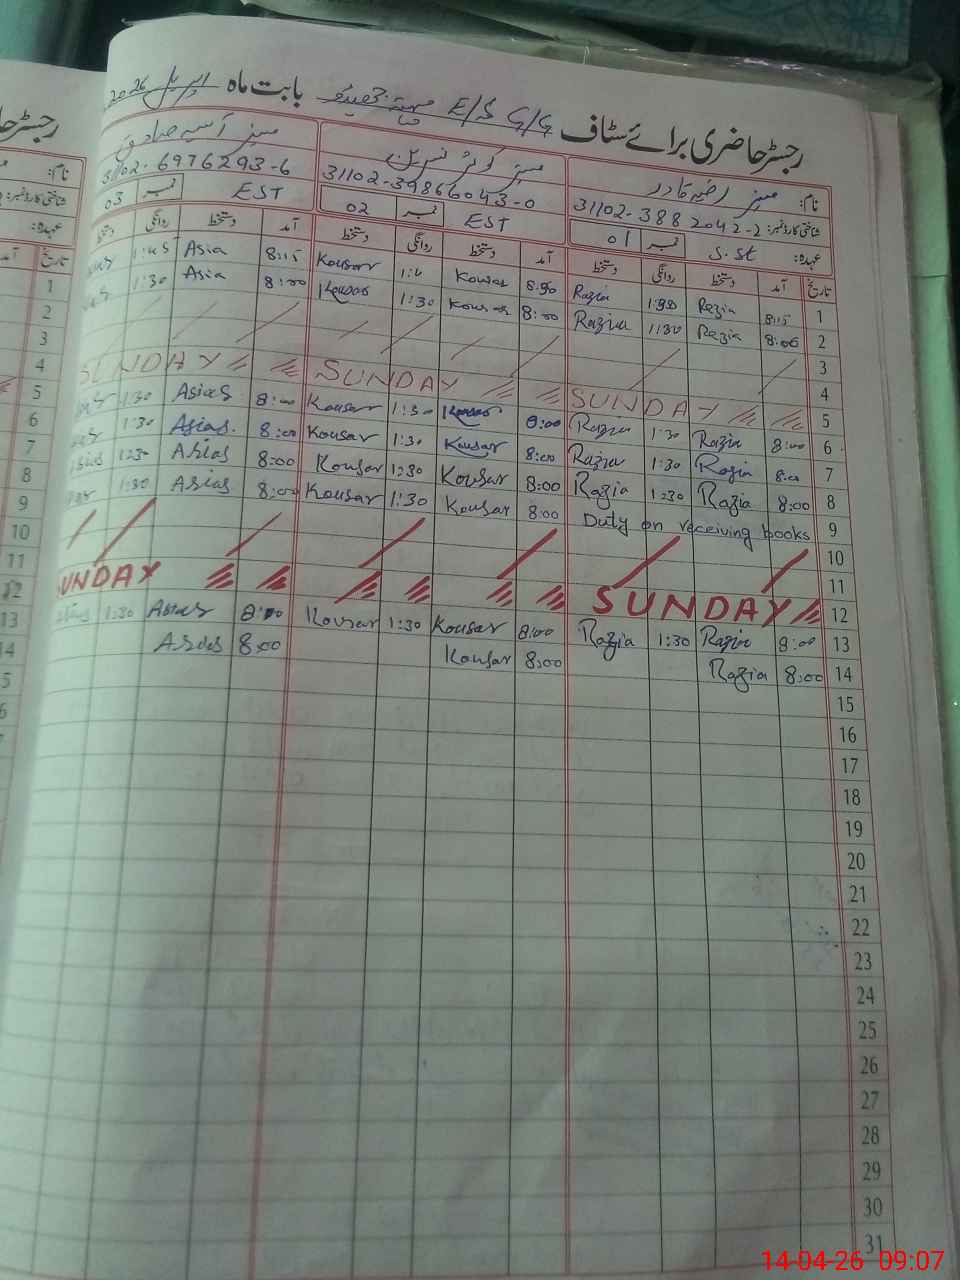 رجسٹر حاضری برائے سٹاف G/G E/S بابت ماہ اپریل 2026
نام: مسز رضیہ قادر
مسز کوثر نسرین
مسز آسیہ صادق
شناختی کارڈ نمبر: 31102-388 2042-2
31102-39866043-0
31102-6976293-6
عہدہ: S.St نمبر 01
EST نمبر 02
EST نمبر 03
تاریخ آمد دستخط روانگی دستخط آمد دستخط روانگی دستخط آمد دستخط روانگی دستخط
1 8:15 Razia Razia Kousar Kousar 8:15 Asia 1:45
2 8:00 Razia 1:30 Razia 8:00 Kousar 1:30 Kousar 8:00 Asia 1:30
3
4
5 SUNDAY SUNDAY SUNDAY
6 8:00 Razia 1:30 Razia 8:00 Kousar 1:30 Kousar 8:00 Asias 1:30
7 8:00 Razia 1:30 Razia 8:00 Kousar 1:30 Kousar 8:00 Asias 1:30
8 8:00 Razia 1:30 Razia 8:00 Kousar 1:30 Kousar 8:00 Asias 1:30
9 Duty on receiving books 8:00 Kousar 1:30 Kousar 8:00 Asias 1:30
10
11
12 SUNDAY SUNDAY
13 8:00 Razia 1:30 Razia 8:00 Kousar 1:30 Kousar 8:00 Asias 1:30
14 8:00 Razia 8:00 Kousar 8:00 Asias
15
16
17
18
19
20
21
22
23
24
25
26
27
28
29
30
31
رجسٹر حا
نام:
شناختی کارڈ نمبر:
عہدہ:
تاریخ
1
2
3
4
5
6
7
8
9
10
11
12
13
14-04-26 09:07